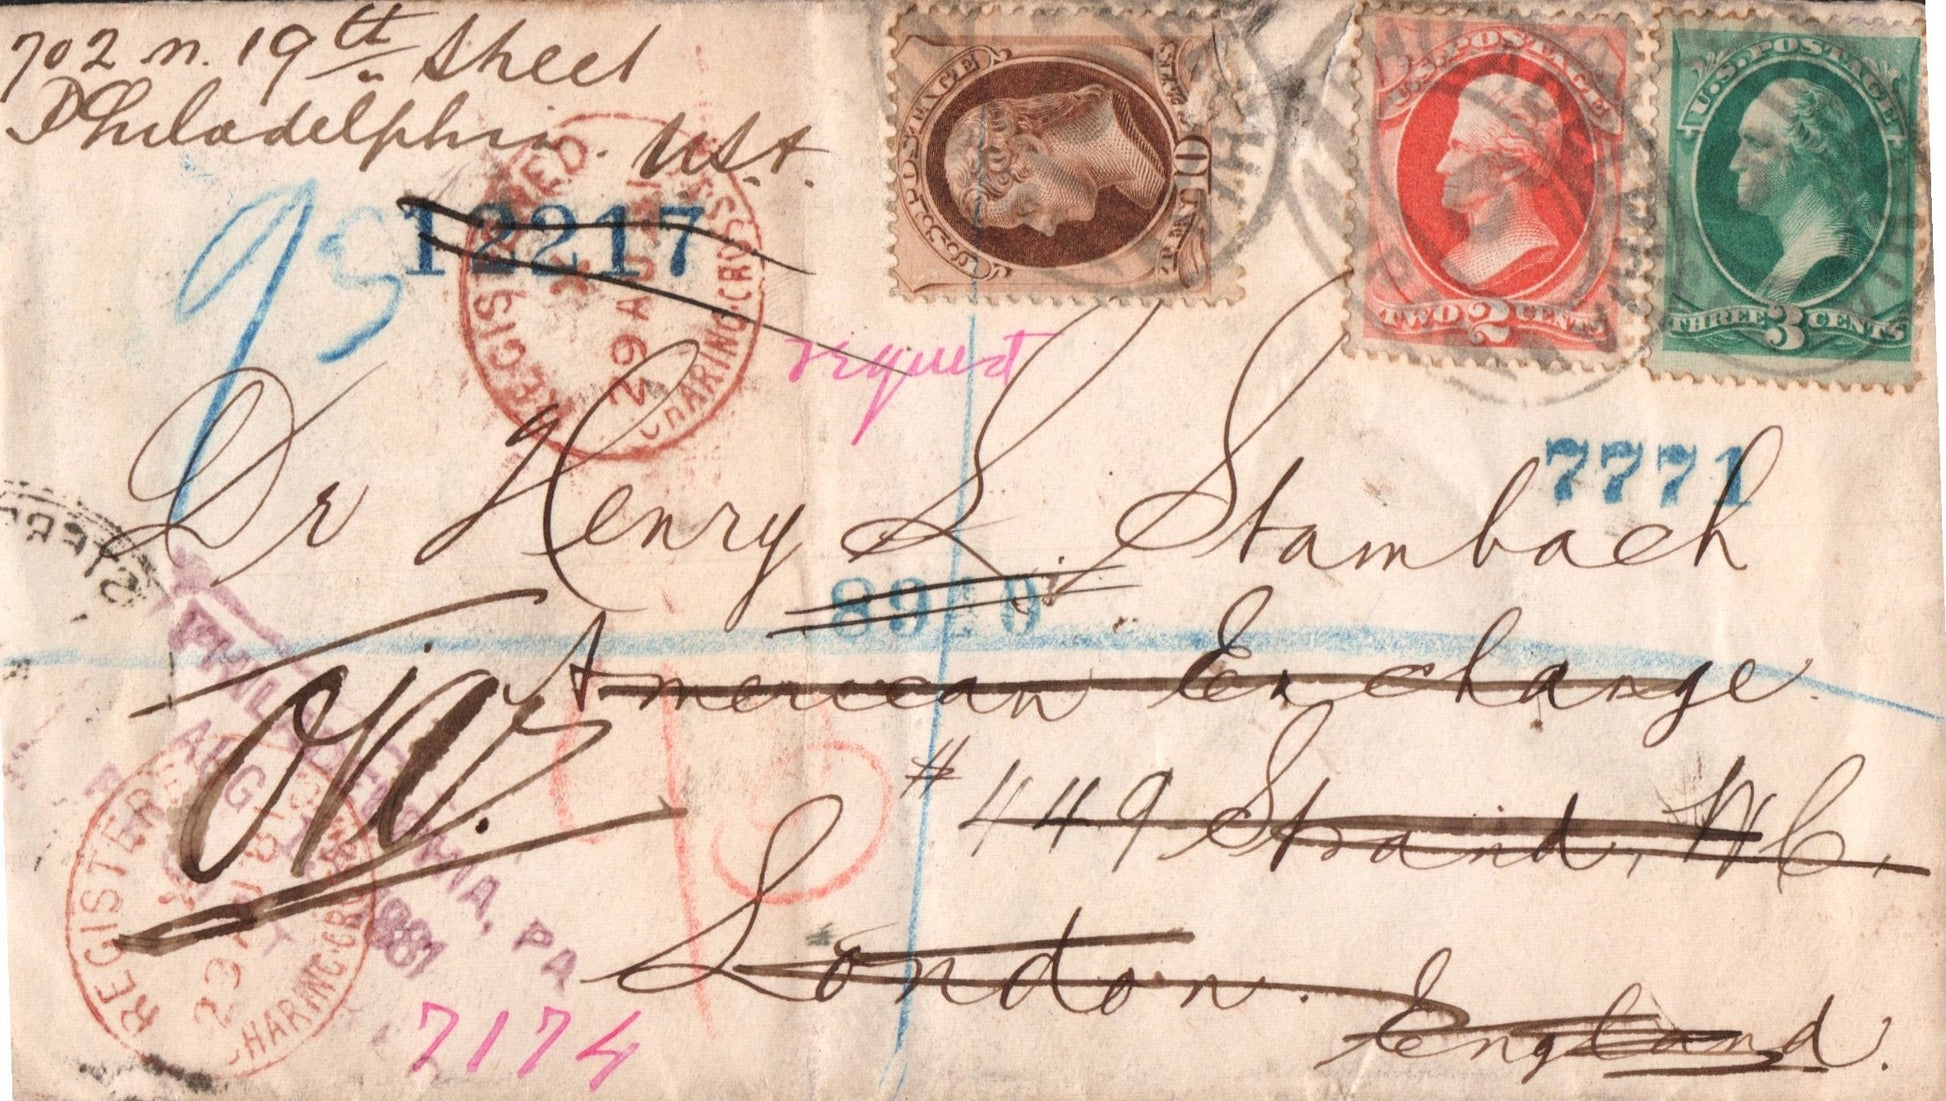 702 N. 19th Street
Philadelphia. USA.
U.S. POSTAGE
10
U.S. POSTAGE
TWO 2 CENTS
U.S. POSTAGE
THREE 3 CENTS
95
12217
REGISTERED
29 AU 81
CHARING.CROSS
request
7771
Dr Henry L. Stambach
8910
American Exchange.
# 449 Strand, W.C.,
London.
England.
PHILADELPHIA, PA
AUG
1881
REGISTERED
29 AU 81
CHARING.CROSS
7174